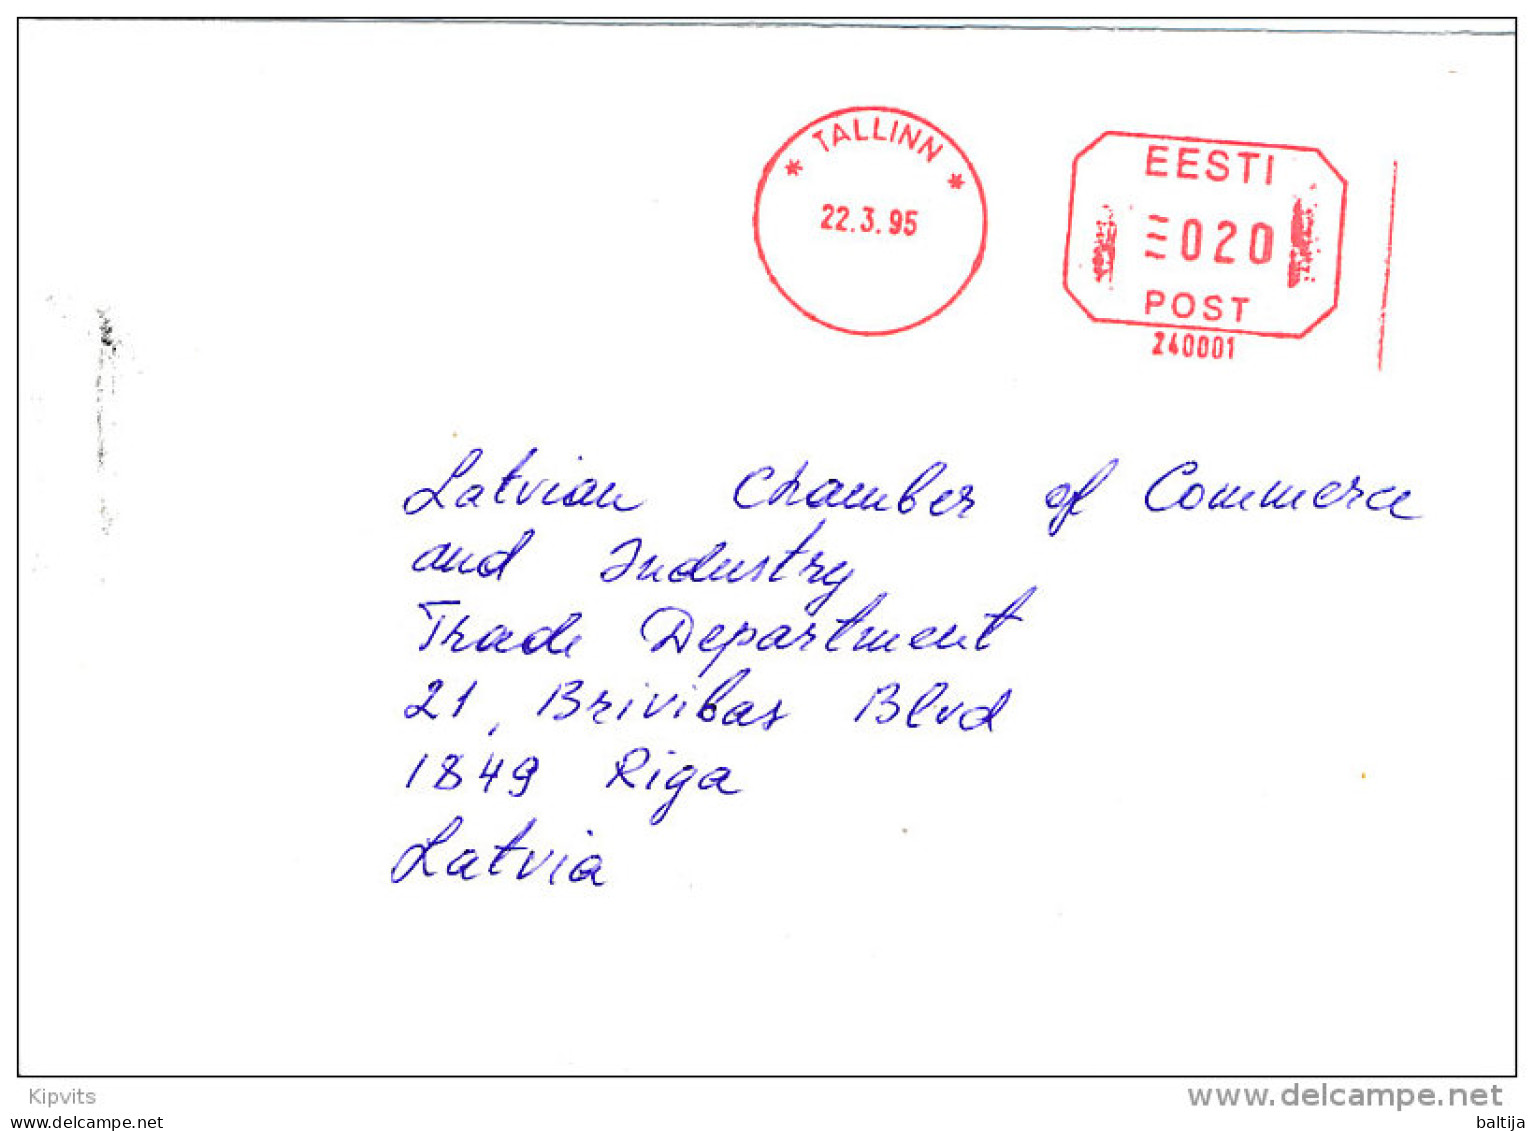 * TALLINN *
22.3.95
EESTI
020
POST
240001
Latvian Chamber of Commerce
and Industry
Trade Department
21, Brivibas Blvd
1849 Riga
Latvia
Kipvits
www.delcampe.net
marnox.com
baltija